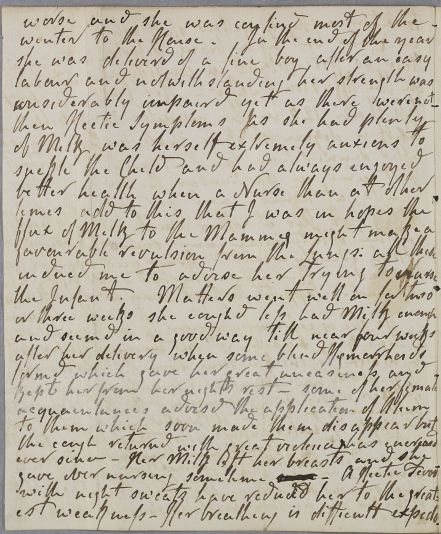 worse and she was confined most of the
winter to the House. In the end of the year
she was deliverd of a fine boy, after an easy
labour and notwithstanding her strength was
considerably impaird yett as there were not
then Hectic Symptoms as she had plenty
of Milk was herself extremely anxious to
suckle the Child and had always enjoyed
better health when a Nurse than att other
times add to this that I was in hopes the
flux of Milk to the Mammeg might make a
favourable revulsion from the Lungs: all these
induced me to advise her trying to nurse
the Infant. Matters went well on for two
or three weeks she coughd less had Milk enough
and seemd in a good way till near four weeks
after her delivery when some blind Hemorrhoids
formd which gave her great uneasiness and
kept her from her nights rest - some of her female
acquaintances advisd the application of
to them which soon made them disappear but
the cough returnd with great violence has encreased
ever since - Her Milk left her breasts and she
gave over nursing sometime - A Hectic Fever
with night sweats have reduced her to the great-
est weakness - Her breathing is difficult expecto